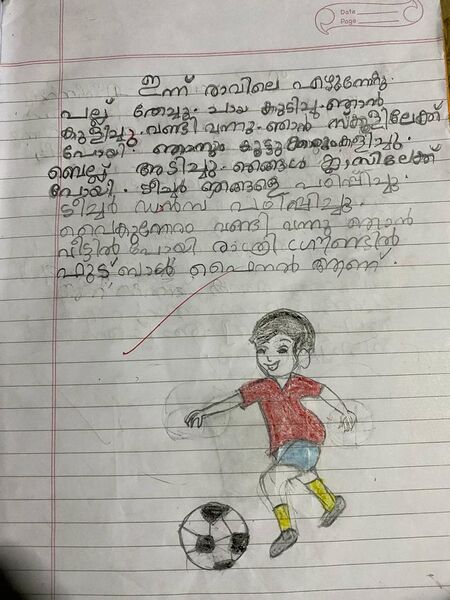 Date
Page
ഇന്ന് രാവിലെ എഴുന്നേറ്റു.
പല്ല് തേച്ചു. ചായ കുടിച്ചു. ഞാൻ
കുളിച്ചു. വണ്ടി വന്നു. ഞാൻ സ്കൂളിലേക്ക്
പോയി. ഞാനും കൂട്ടുകാരും കളിച്ചു.
ബെല്ല് അടിച്ചു. ഞങ്ങൾ ക്ലാസിലേക്ക്
പോയി. ടീച്ചർ ഞങ്ങളെ പഠിപ്പിച്ചു.
ടീച്ചർ ഡാൻസ് പഠിപ്പിച്ചു.
വൈകുന്നേരം വണ്ടി വന്നു ഞാൻ
വീട്ടിൽ പോയി രാത്രി ഗ്രൗണ്ടിൽ
ഫുട്ബാൾ ഫൈനൽ ആണ്.